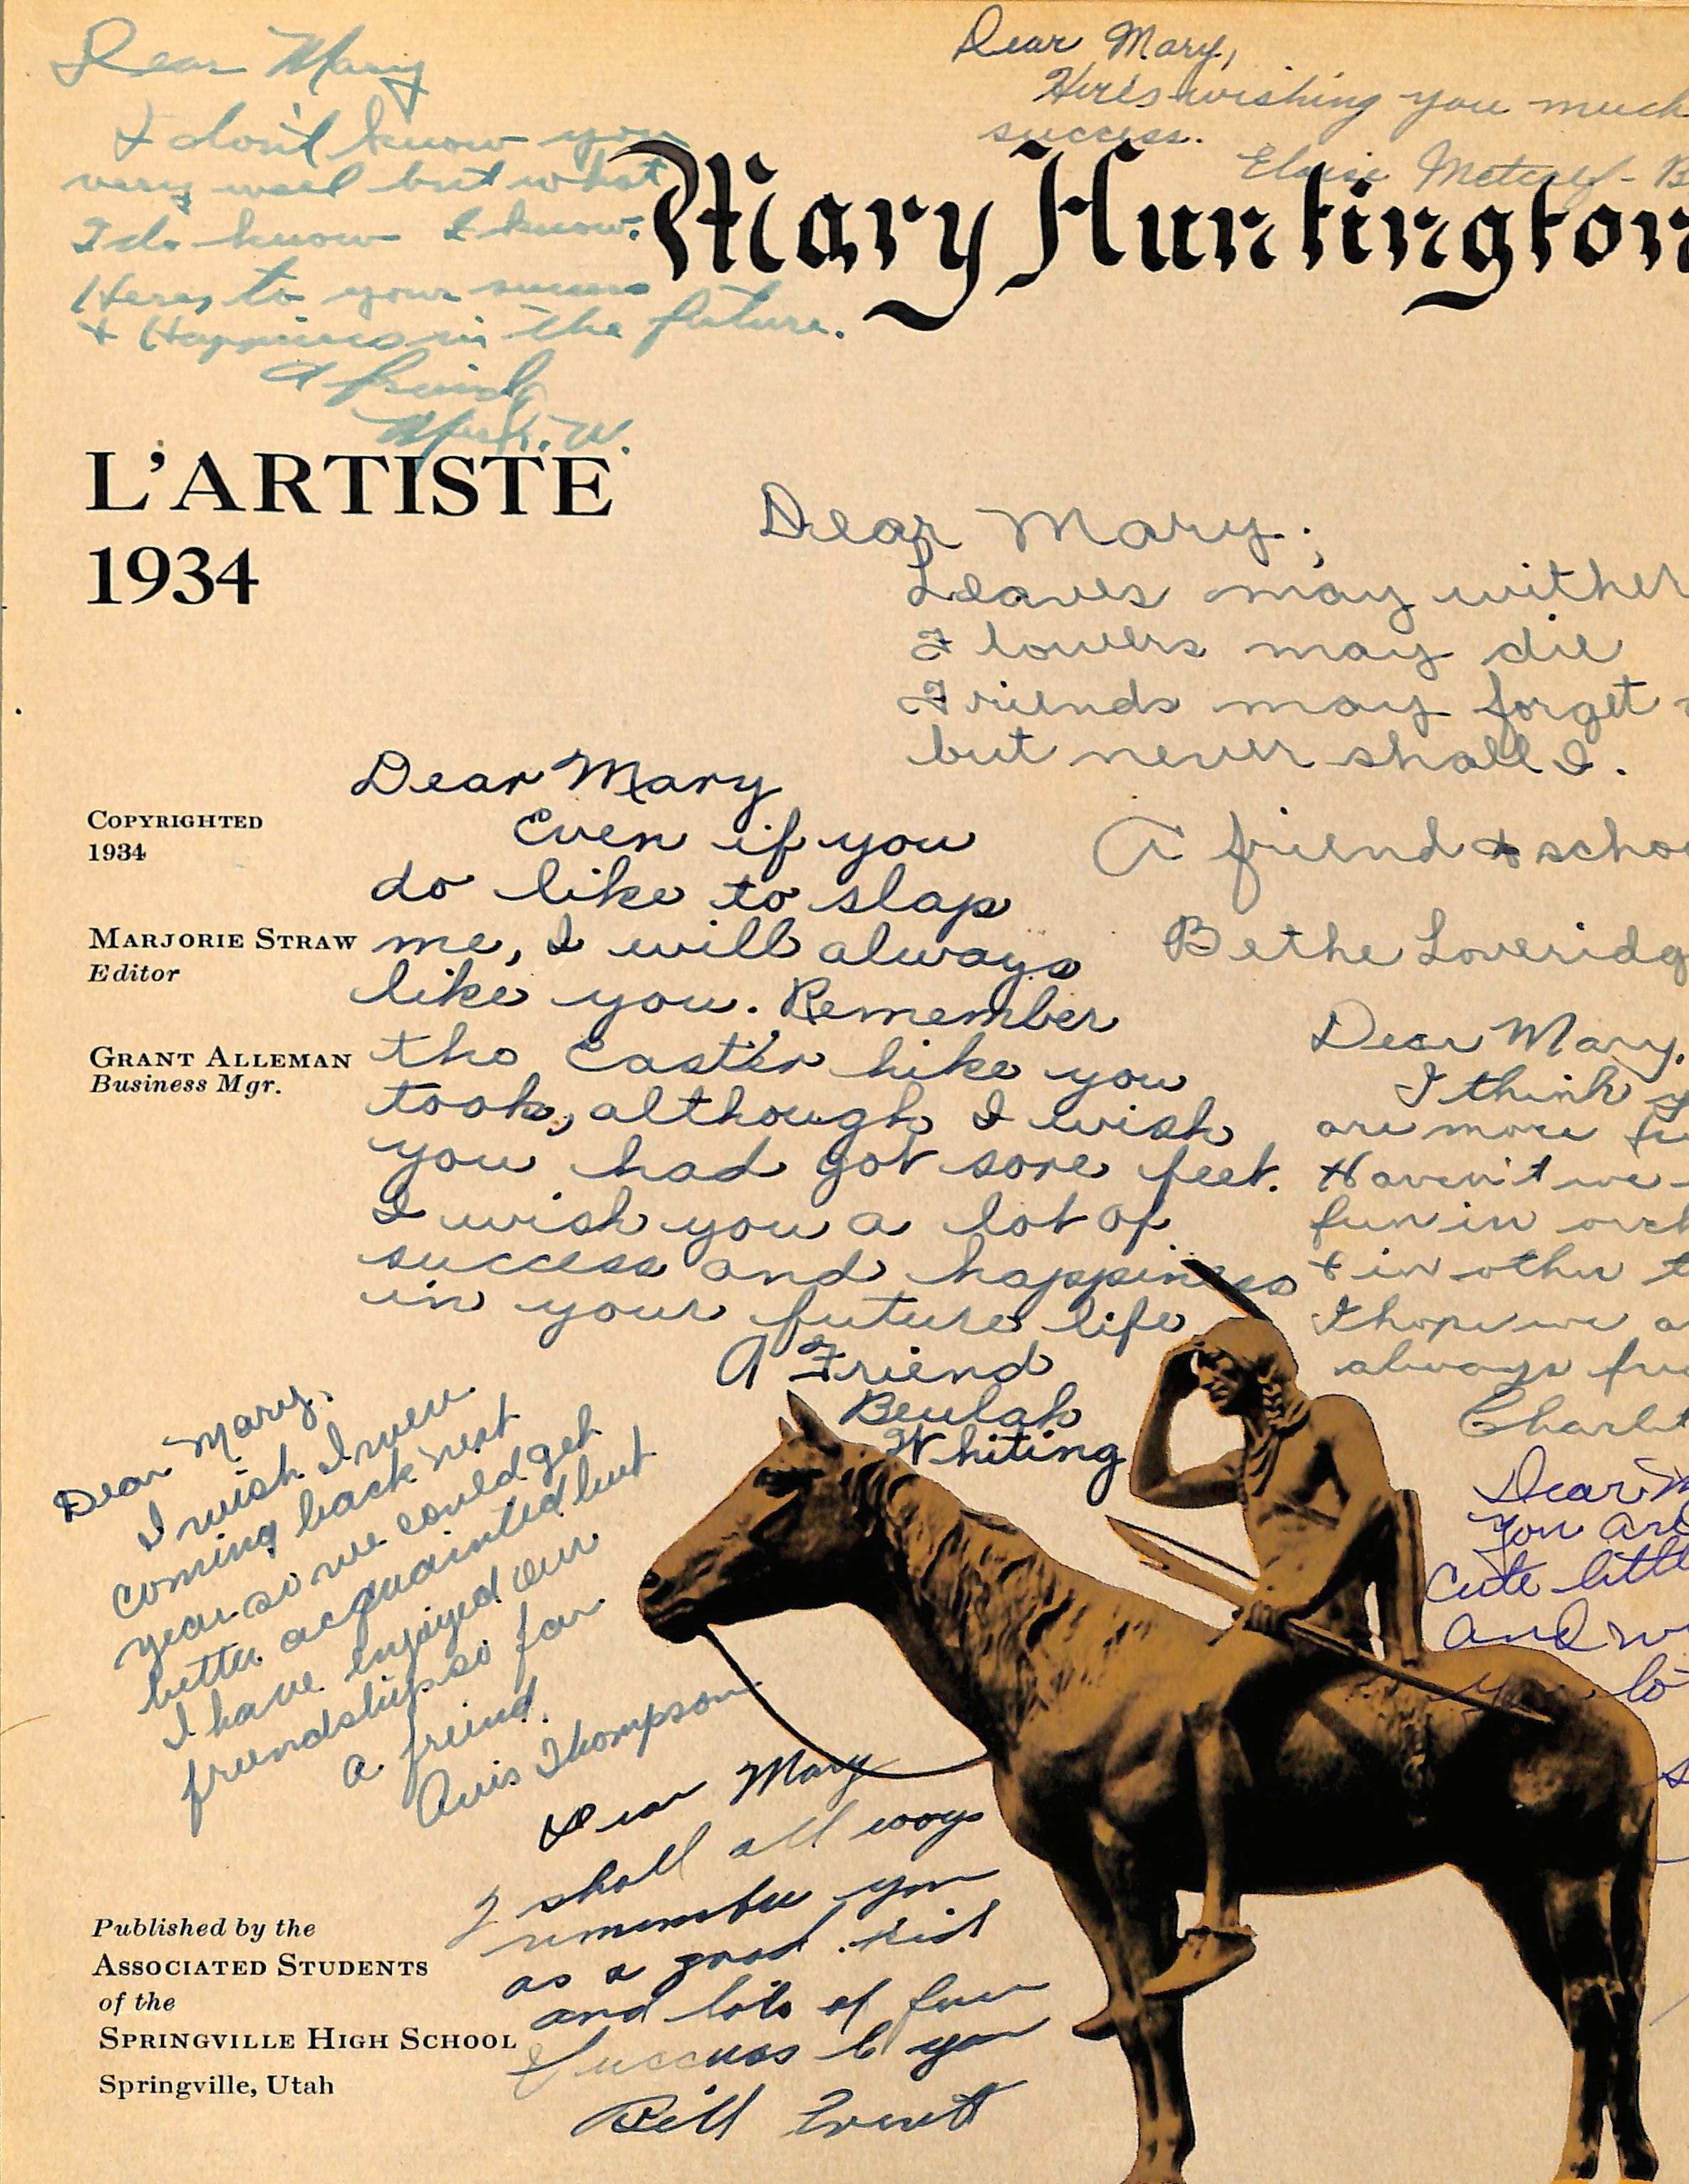 Dear Mary
I don't know you
very well but what
I do know I know.
Heres to your success
& Happiness in the future.
A friend
W.
Dear Mary,
Here's wishing you much
success.
Eloise Metcalf - B
Mary Huntington
L'ARTISTE
1934
Dear Mary;
Leaves may wither
Flowers may die
Friends may forget
but never shall I.
A friend & schoo
Bethe Loveridg
COPYRIGHTED
1934
MARJORIE STRAW
Editor
GRANT ALLEMAN
Business Mgr.
Dear Mary
Even if you
do like to slap
me, I will always
like you. Remember
the Easter hike you
took, although I wish
you had got sore feet.
I wish you a lot of
success and happiness
in your future life
A Friend
Beulah
Whiting
Dear Mary,
I think y
are more fu
Haven't we
fun in orch
& in other t
I hope we a
always frie
Charl
Dear M
You are
cute littl
and wi
you lo
s
Dear Mary,
I wish I were
coming back next
year so we could get
better acquainted but
I have enjoyed our
friendship so far.
a freind.
Avis Thompson
Dear Mary
I shall all ways
remember you
as a good kid
and lots of fun
Success to you
Bill
Published by the
ASSOCIATED STUDENTS
of the
SPRINGVILLE HIGH SCHOOL
Springville, Utah